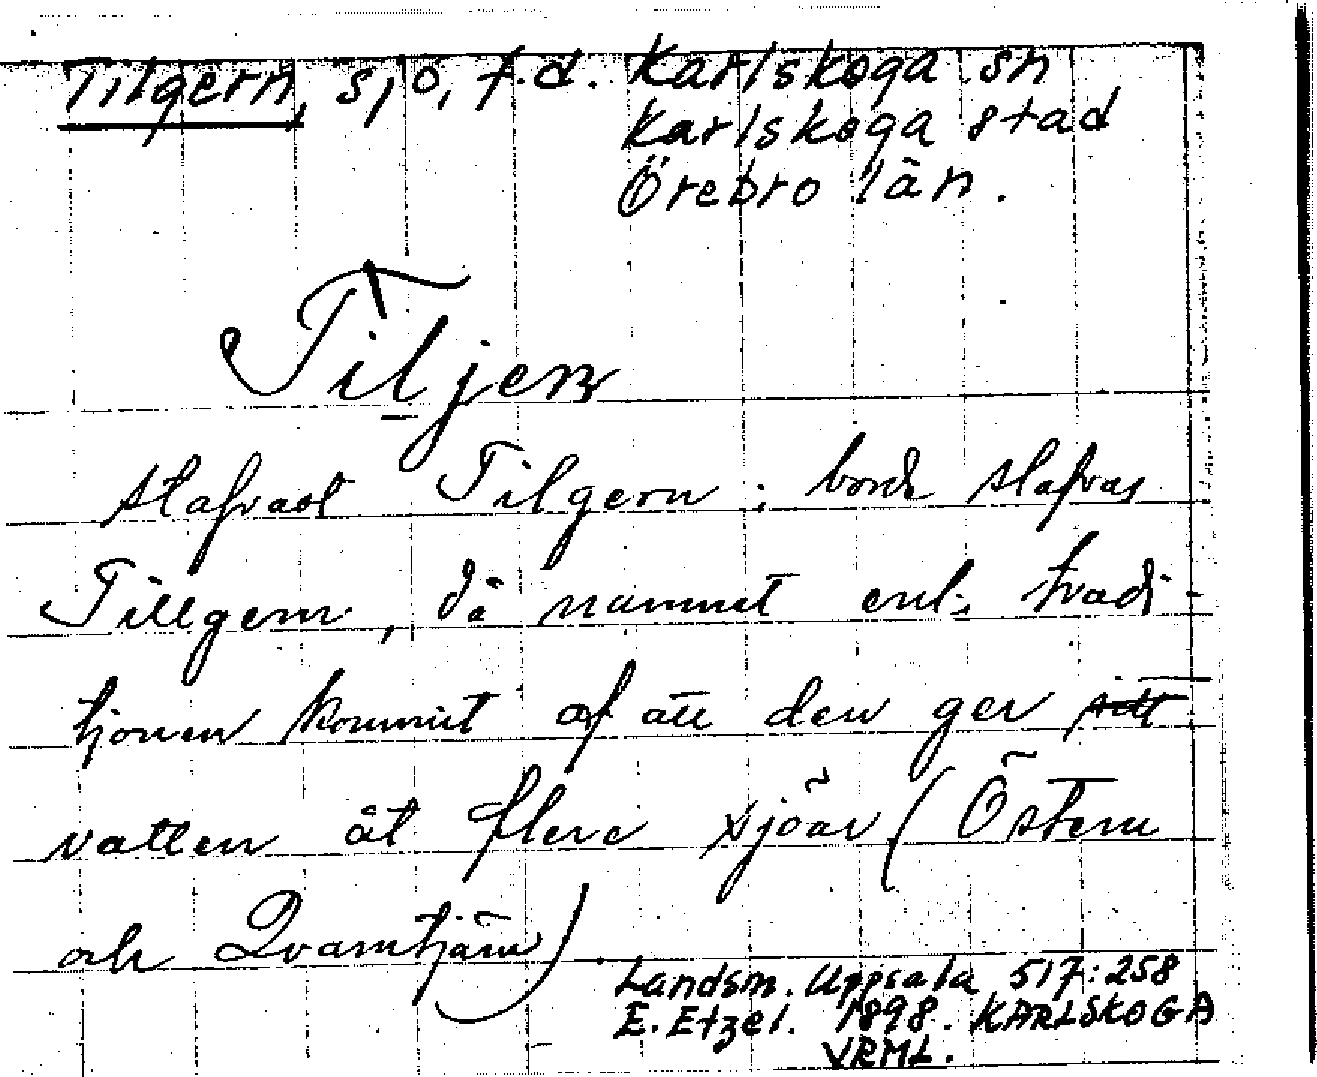 Tilgern, sjö, f.d. Karlskoga sn
Karlskoga stad
Örebro län.
Tiljen
stafvast Tilgern; borde stafvas
Tillgern, då namnet enl. tradi-
tjonen kommit af att den ger sitt
vatten åt flere sjöar (Östern
och Qvarntjärn).
Landsm. Uppsala 517:258
E. Etzel. 1898. KARLSKOGA
VRML.